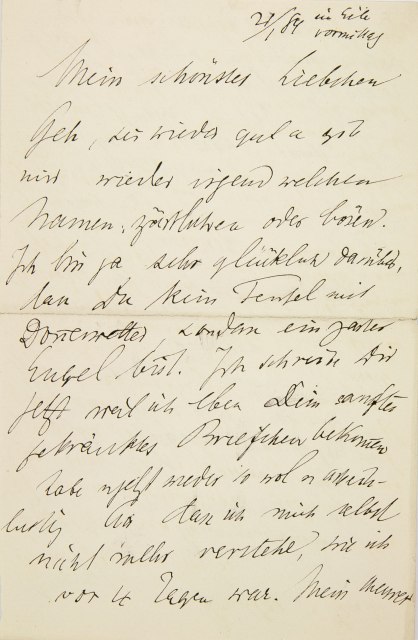 in Eile
vormittag
Mein schönstes Liebchen
Geh, sei wieder gut u gib
mir wieder irgend welchen
Namen, zärtlichen oder bösen.
Ich bin ja sehr glücklich darüber,
daß Du kein Teufel mit
Donnerwetter sondern ein zarter
Engel bist. Ich schreibe Dir
jetzt weil ich eben Dein sanftes
gekränktes Briefchen bekommen
habe u jetzt wieder so wol u arbeits-
lustig bin daß ich mich selbst
nicht mehr verstehe, wie ich
vor 4 Tagen war. Mein